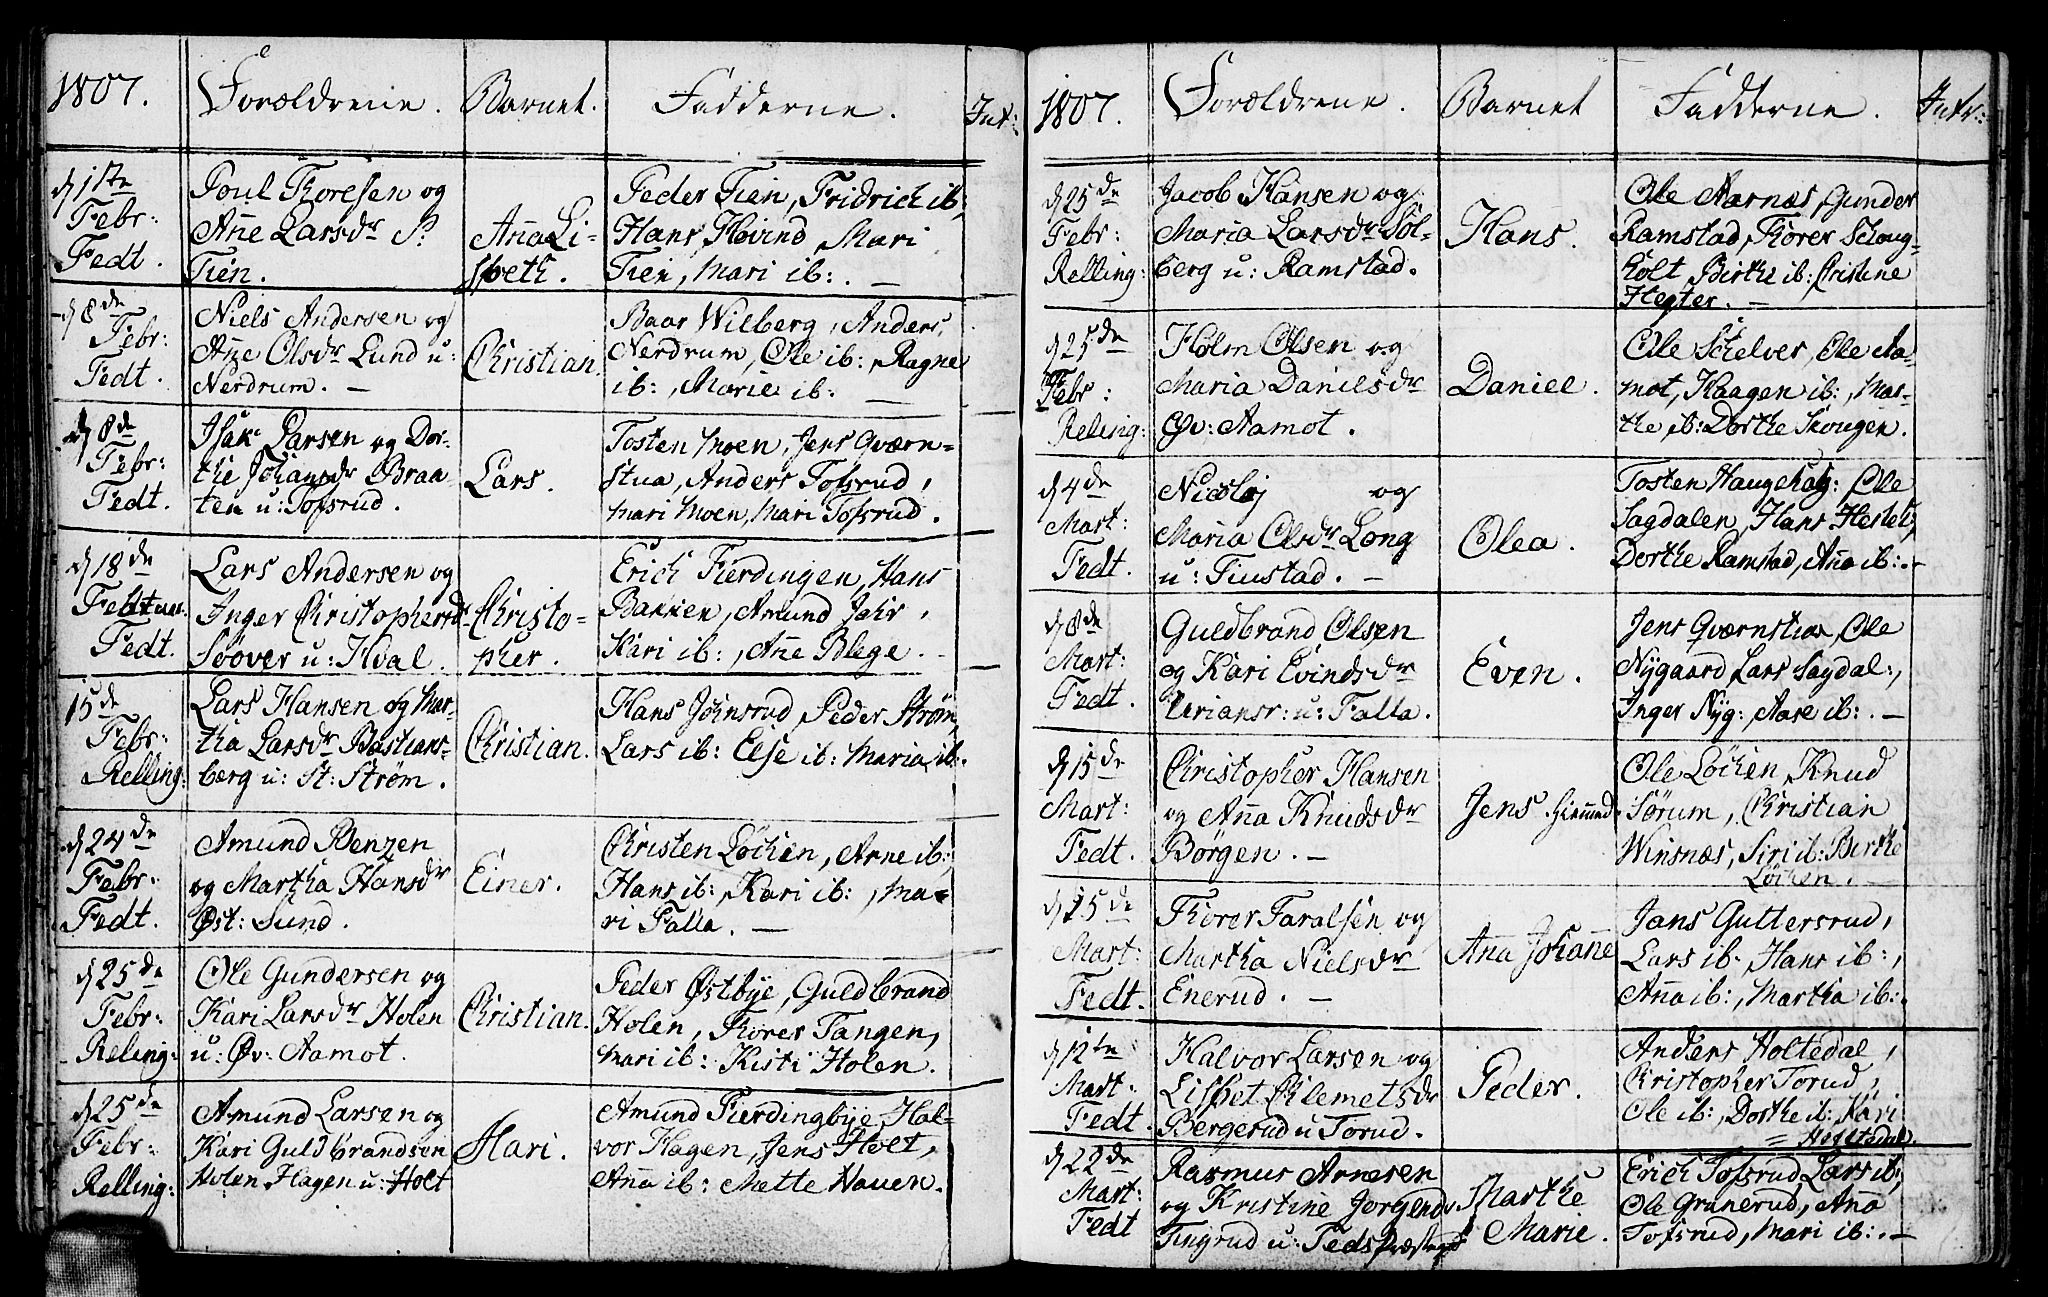 1807. Forældrene. Barnet. Fadderne. Int:
d 1ste
Febr:
Fedt.
Poul Thoresen og
Añe Larsdr S:
Tien.
Aña Li-
sbeth.
Peder Tien, Fridrich ib,
Hans Høvind, Mari
Tien, Mari ib: . —
d 8de
Febr:
Fedt.
Niels Andersen og
Añe Olsdr Lund u:
Nerdrum. —
Christian.
Baar Wilberg, Anders
Nerdrum, Ole ib:, Ragne
ib:, Marie ib: —
d 8de
Febr:
Fedt.
Isak Larsen og Dor-
the Johansdr Braa-
ten u: Tofsrud.
Lars.
Tosten Moen, Jens Qværn-
stua, Anders Tofsrud,
Mari Moen, Mari Tofsrud.
d 18de
Fedt.
Lars Andersen og
Inger Christophersdr
Søover u: Hval.
Christo-
pher.
Erich Fierdingen, Hans
Bakken, Amund Jahr,
Kari ib:, Añe Blege. —
15de
Febr:
Relling:
Lars Hansen og Mar-
tha Larsdr Bastians-
berg u: St: Strøm.
Christian.
Hans Johnsrud, Peder Strøm,
Lars ib: Else ib: Maria ib:.
d 24de
Febr:
Fedt.
Amund Benzen
og Martha Hansdr
Øst: Sund.
Einer.
Christen Løchen, Arne ib:
Hans ib:, Kari ib:, Ma-
ri Falla. —
d 25de
Febr:
Reling:
Ole Gundersen og
Kari Larsdr Holen
u: Øv: Aamot.
Christian.
Peder Østbye, Guldbrand
Holen, Thorer Tangen,
Mari ib: Kisti Holen.
d 25de
Febr:
Relling:
Amund Larsen og
Kari Guldbrandsen
Holen Hagen u: Holt
Mari.
Amund Fierdingbye, Hal-
vor Hagen, Jens Holt,
Aña ib: Mette Hauen.
1807. Forældrene. Barnet Fadderne. Intr:
d 25de
Febr:
Relling:
Jacob Hansen og
Maria Larsdr Sol-
berg u: Ramstad.
Hans.
Ole Aarnæs, Gunder
Ramstad, Thorer Schoug-
holt Birthe ib: Christine
Hegter. —
d 25de
Febr:
Reling:
Holm Olsen og
Maria Danielsdr
Øv: Aamot.
Daniel.
Ole Schelver, Ole Aa-
mot, Haagen ib:, Mar-
the ib: Dorthe Skougen.
d 4de
Mart:
Fedt.
Nicolaj og
Maria Olsdr Long
u: Tiustad. —
Olea.
Tosten Haugehalg: Ole
Sagdalen, Hans Hestel,
Dorthe Ramstad, Aña ib:. -
d 8de
Mart:
Fedt.
Guldbrand Olsen
og Kari Evindsdr
u: Falla.
Even.
Jens Qværnstua, Ole
Nygaard Lars Sagdal:,
Inger Nyg:, Aase ib:. —
d 15de
Mart:
Fedt.
Christopher Hansen
og Aña Knudsdr
Børgen. —
Jens. hiemmed.
Ole Løchen, Knud
Sørum, Christian
Winsnæs, Siri ib: Birthe
Løchen. —
d 15de
Mart:
Fedt.
Thorer Taralsen og
Martha Nielsdr
Enerud. —
Aña Johañe
Jans Guttersrud,
Lars ib., Hans ib:,
Aña ib:, Martha ib:.
d 12te
Mart.
Fedt.
Halvor Larsen og
Lisbet Clemetsdr
Bergerud u Torud.
Peder.
Anders Holtedal,
Christopher Torud,
Ole ib:, Dorthe ib: Kari
= Holtedal.
d 22de
Mart:
Fedt
Rasmus Arnesen
og Kristine Jorgensdr
Tingrud u: Feds Præstegd
Marthe
Marie.
Erich Tofsrud, Lars ib,
Ole Grunerud, Aña
Tofsrud, Mari ib: . —